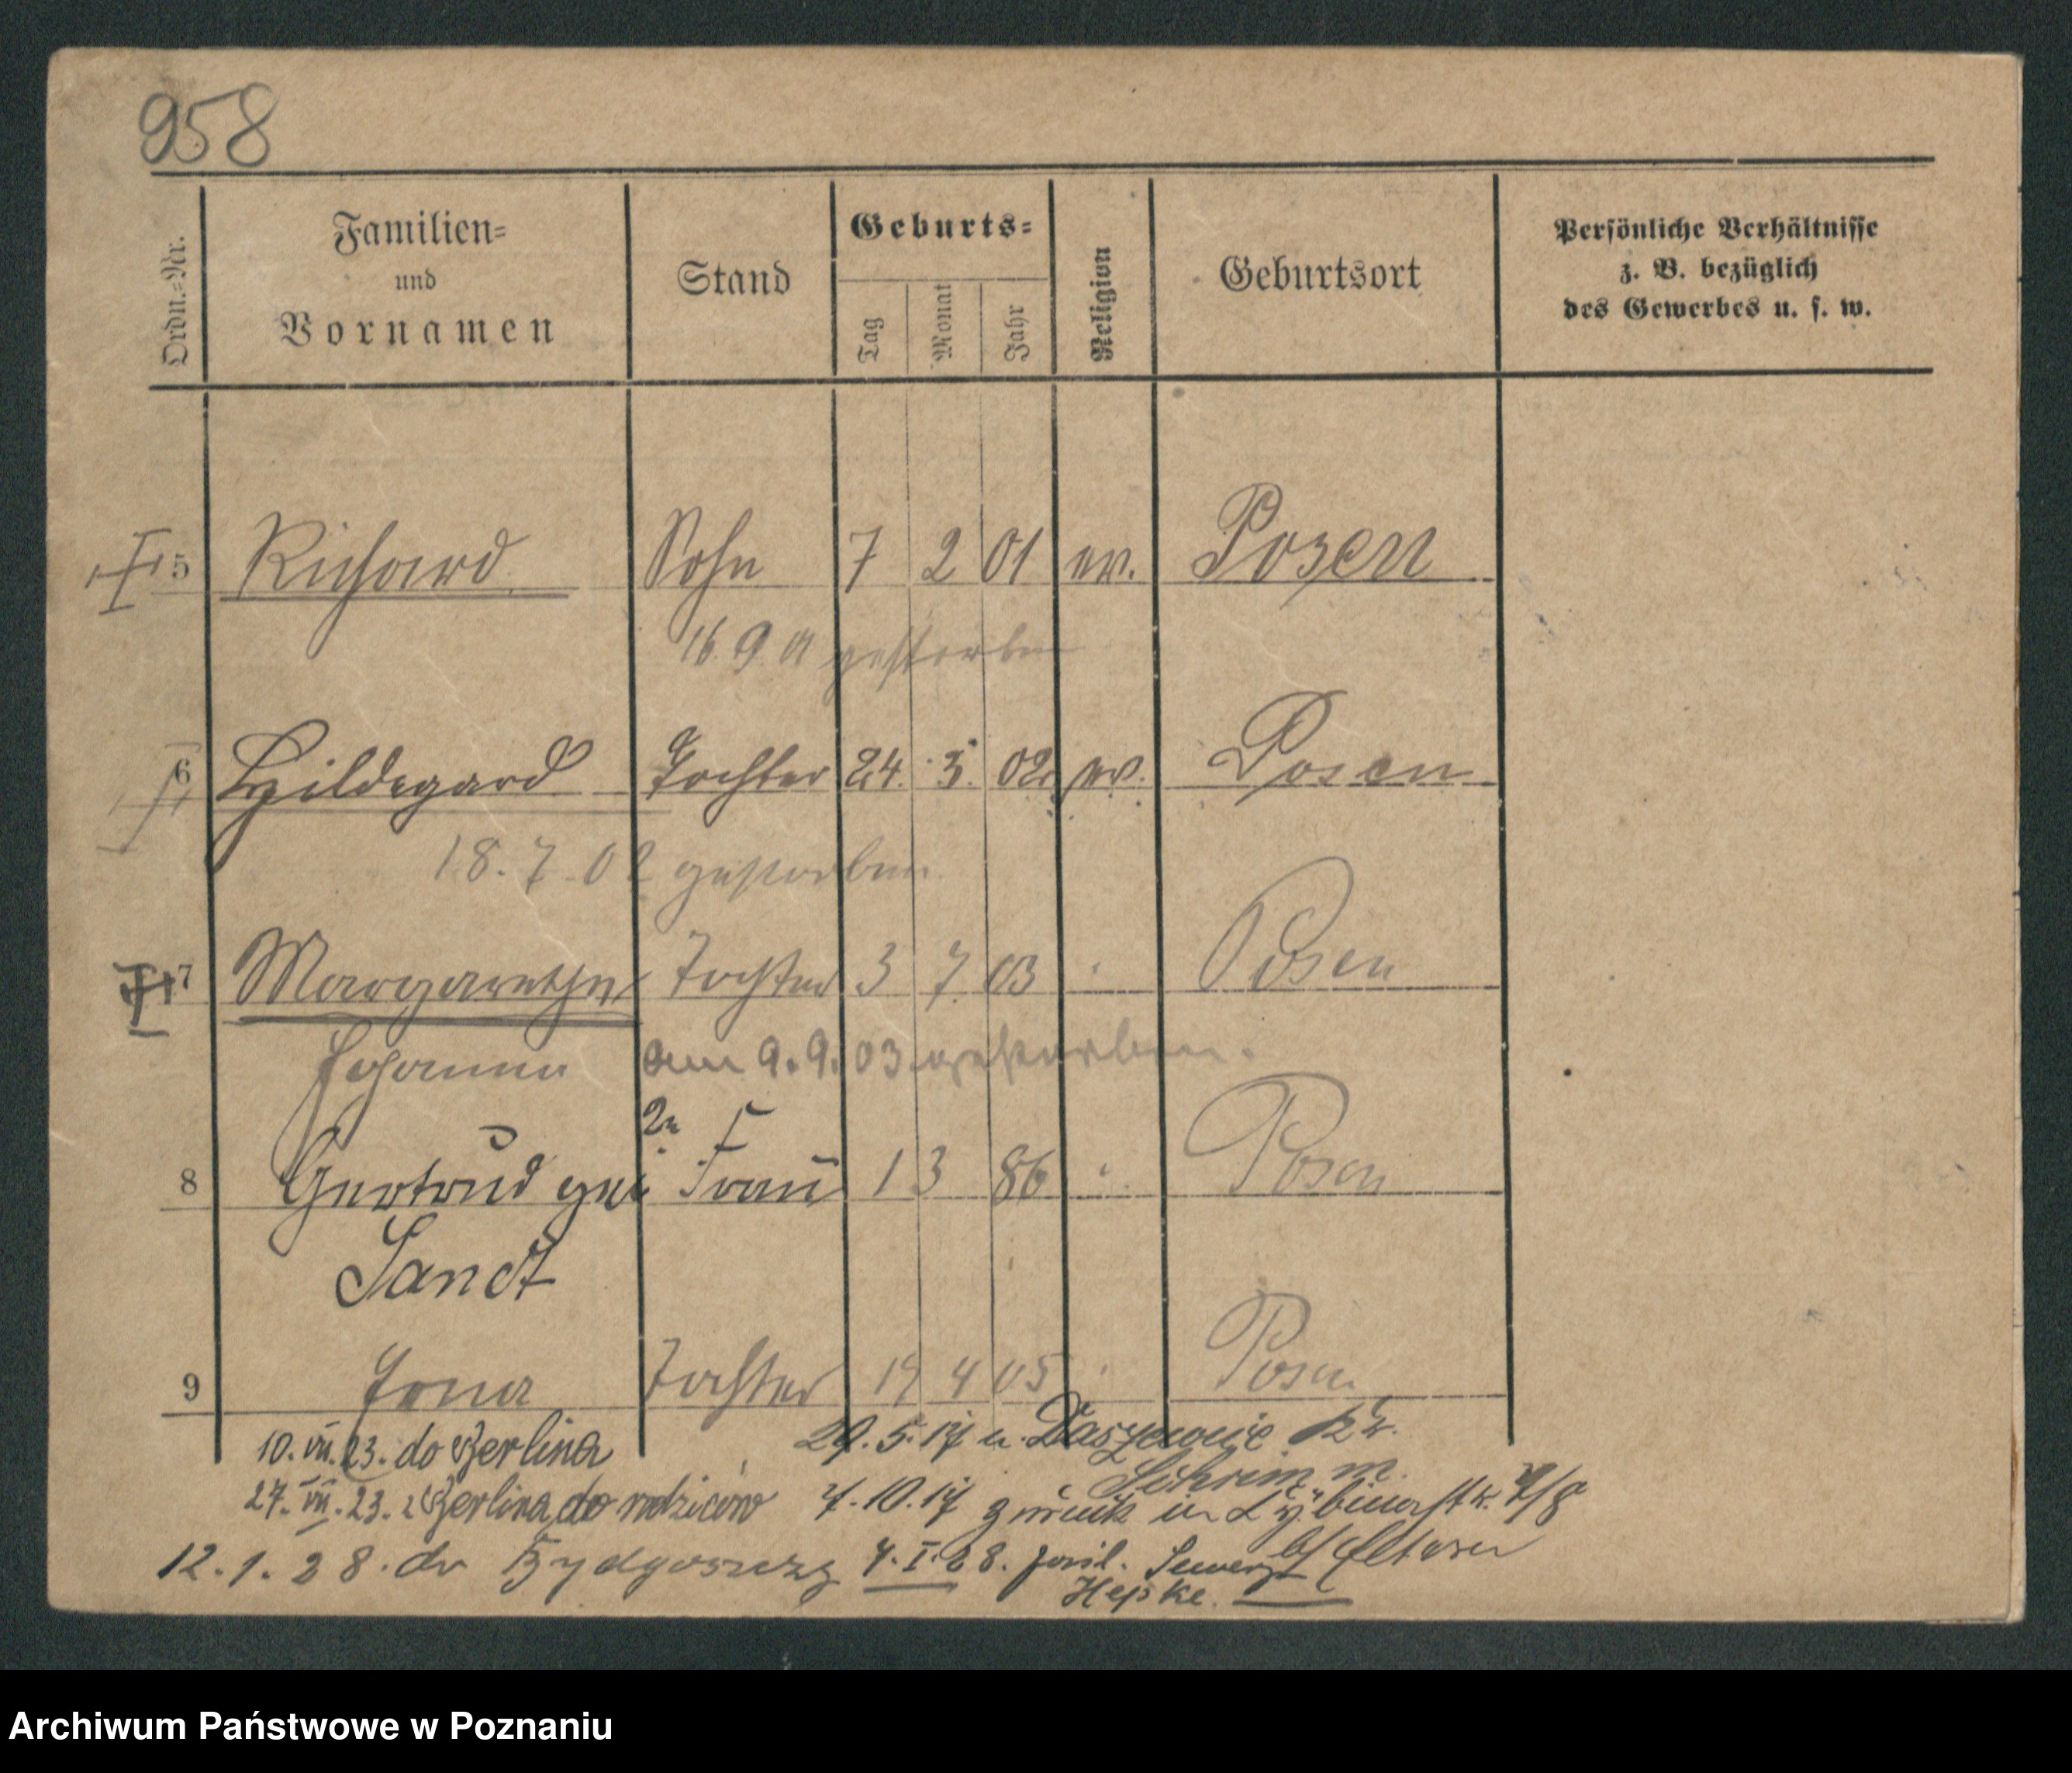 958
Ordn.=Nr. Familien= und Vornamen Stand Geburts= Tag Monat Jahr Religion Geburtsort Persönliche Verhältnisse z. B. bezüglich des Gewerbes u. s. w.
5 Richard Sohn 7 2 01 ev. Posen
16 9 01 gestorben
6 Hildegard Tochter 24. 3. 02. ev. Posen
18. 7. 02 gestorben
7 Margarethe Tochter 3 7. 03 Posen
Johanna am 9. 9. 03 gestorben.
2te
8 Gertrud geb. Frau 1 3 86 Posen
Sandt
9 Erna Tochter 19 4 05 Posen
10. VII. 23. do Berlina 29. 5. 17 n. Kr.
Schrimm
27. VII. 23. z Berlina do rodziców 7. 10. 17 zurück in 7/8
b/ Eltern
12. 1. 28. do Bydgoszczy 4. I. 28.
Hepke.
Archiwum Państwowe w Poznaniu